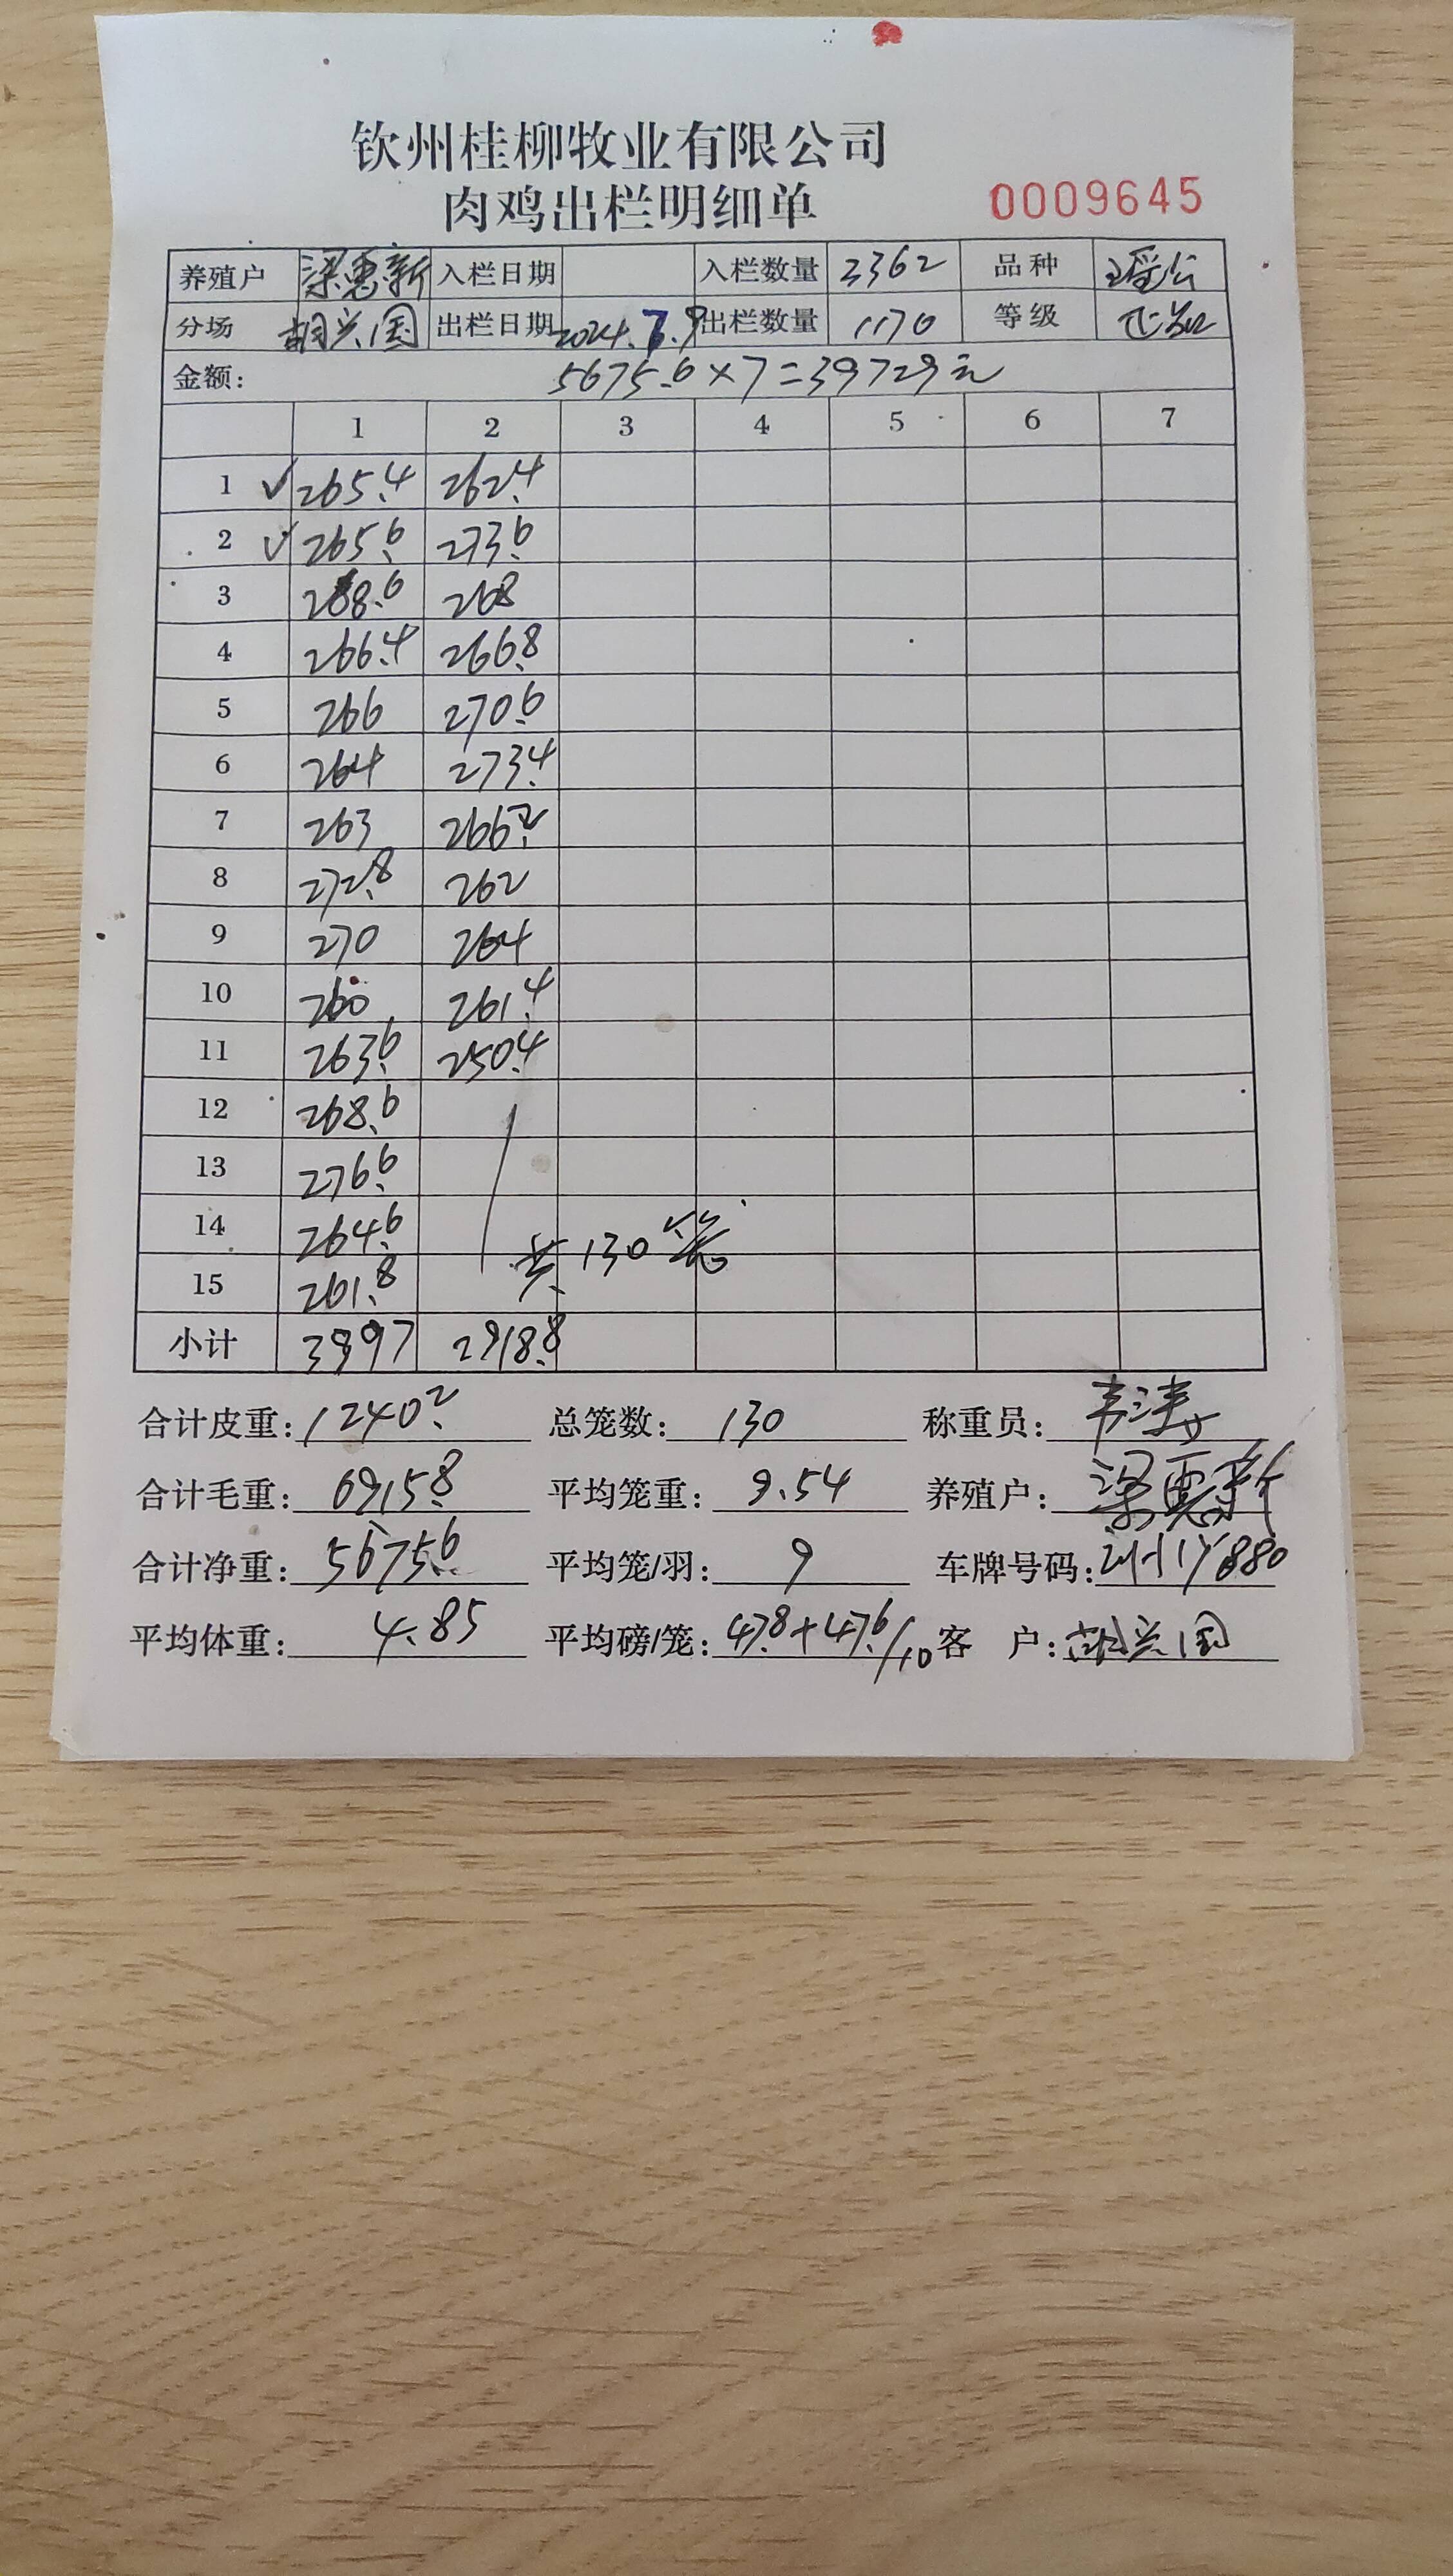 钦州桂柳牧业有限公司
肉鸡出栏明细单 0009645
养殖户 梁惠新 入栏日期 入栏数量 3362 品种 瑶公
分场 胡兴国 出栏日期 2024.7.9 出栏数量 1170 等级 正品
金额: 5675.6×7=39729元
1 2 3 4 5 6 7
1 ✓ 265.4 262.4
2 ✓ 265.6 273.6
3 268.6 268
4 266.4 266.8
5 266 270.6
6 264 273.4
7 263 266.2
8 272.8 262
9 270 264
10 260 261.4
11 263.6 250.4
12 268.6
13 276.6
14 264.6 共130笼
15 261.8
小计 3997 2918.8
合计皮重: 1240.2 总笼数: 130 称重员:
合计毛重: 6915.8 平均笼重: 9.54 养殖户: 梁惠新
合计净重: 5675.6 平均笼/羽: 9 车牌号码:
平均体重: 4.85 平均磅/笼: 47.8+47.6/10 客 户: 胡兴国